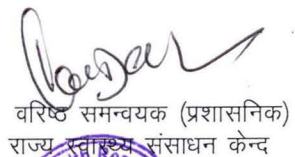 वरिष्ठ समन्वयक (प्रशासनिक)
राज्य स्वास्थ्य संसाधन केन्द